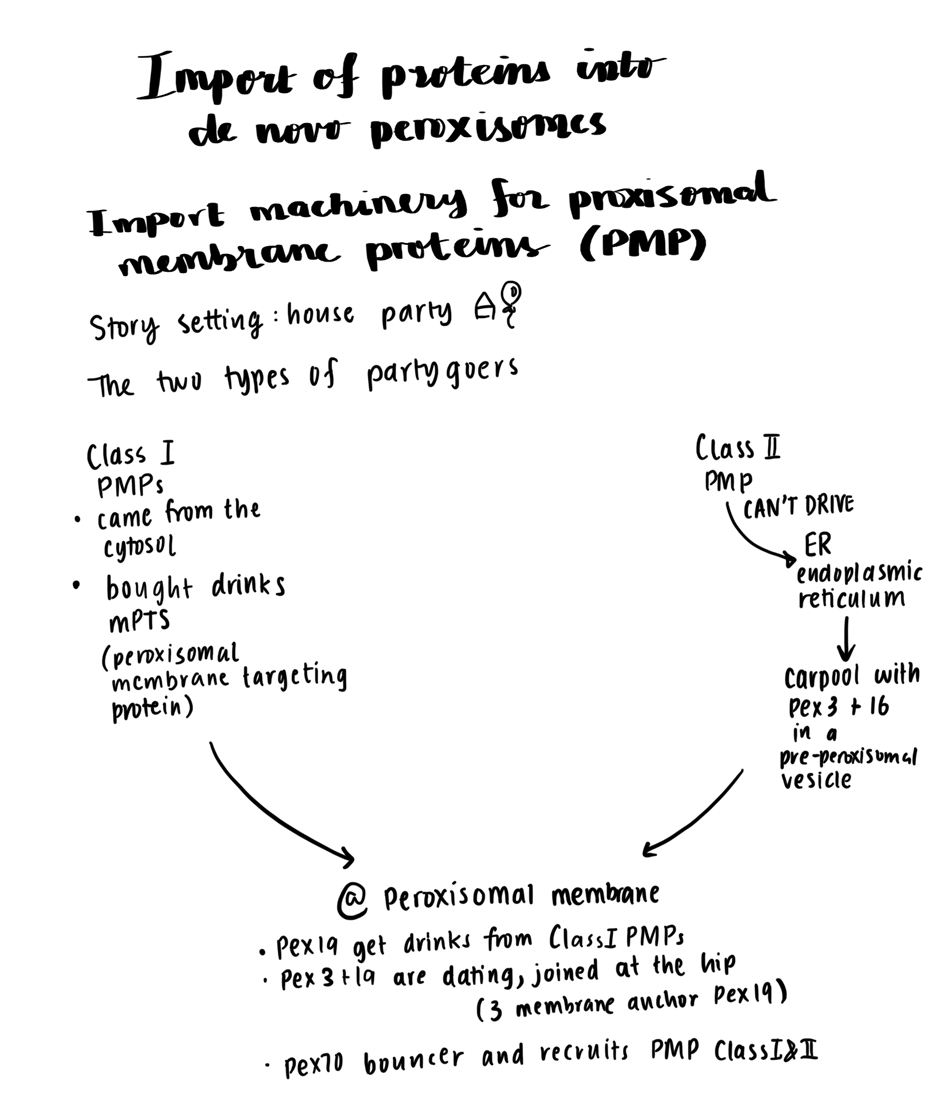 Import of proteins into
de novo peroxisomes
Import machinery for proxisomal
membrane proteins (PMP)
Story setting : house party
The two types of partygoers
Class I
PMPs
• came from the
cytosol
• bought drinks
mPTS
(peroxisomal
membrane targeting
protein)
Class II
PMP
CAN'T DRIVE
ER
endoplasmic
reticulum
carpool with
pex 3 + 16
in a
pre-peroxisomal
vesicle
@ peroxisomal membrane
• Pex19 get drinks from Class I PMPs
• Pex 3+19 are dating, joined at the hip
(3 membrane anchor Pex19)
• pex70 bouncer and recruits PMP Class I & II